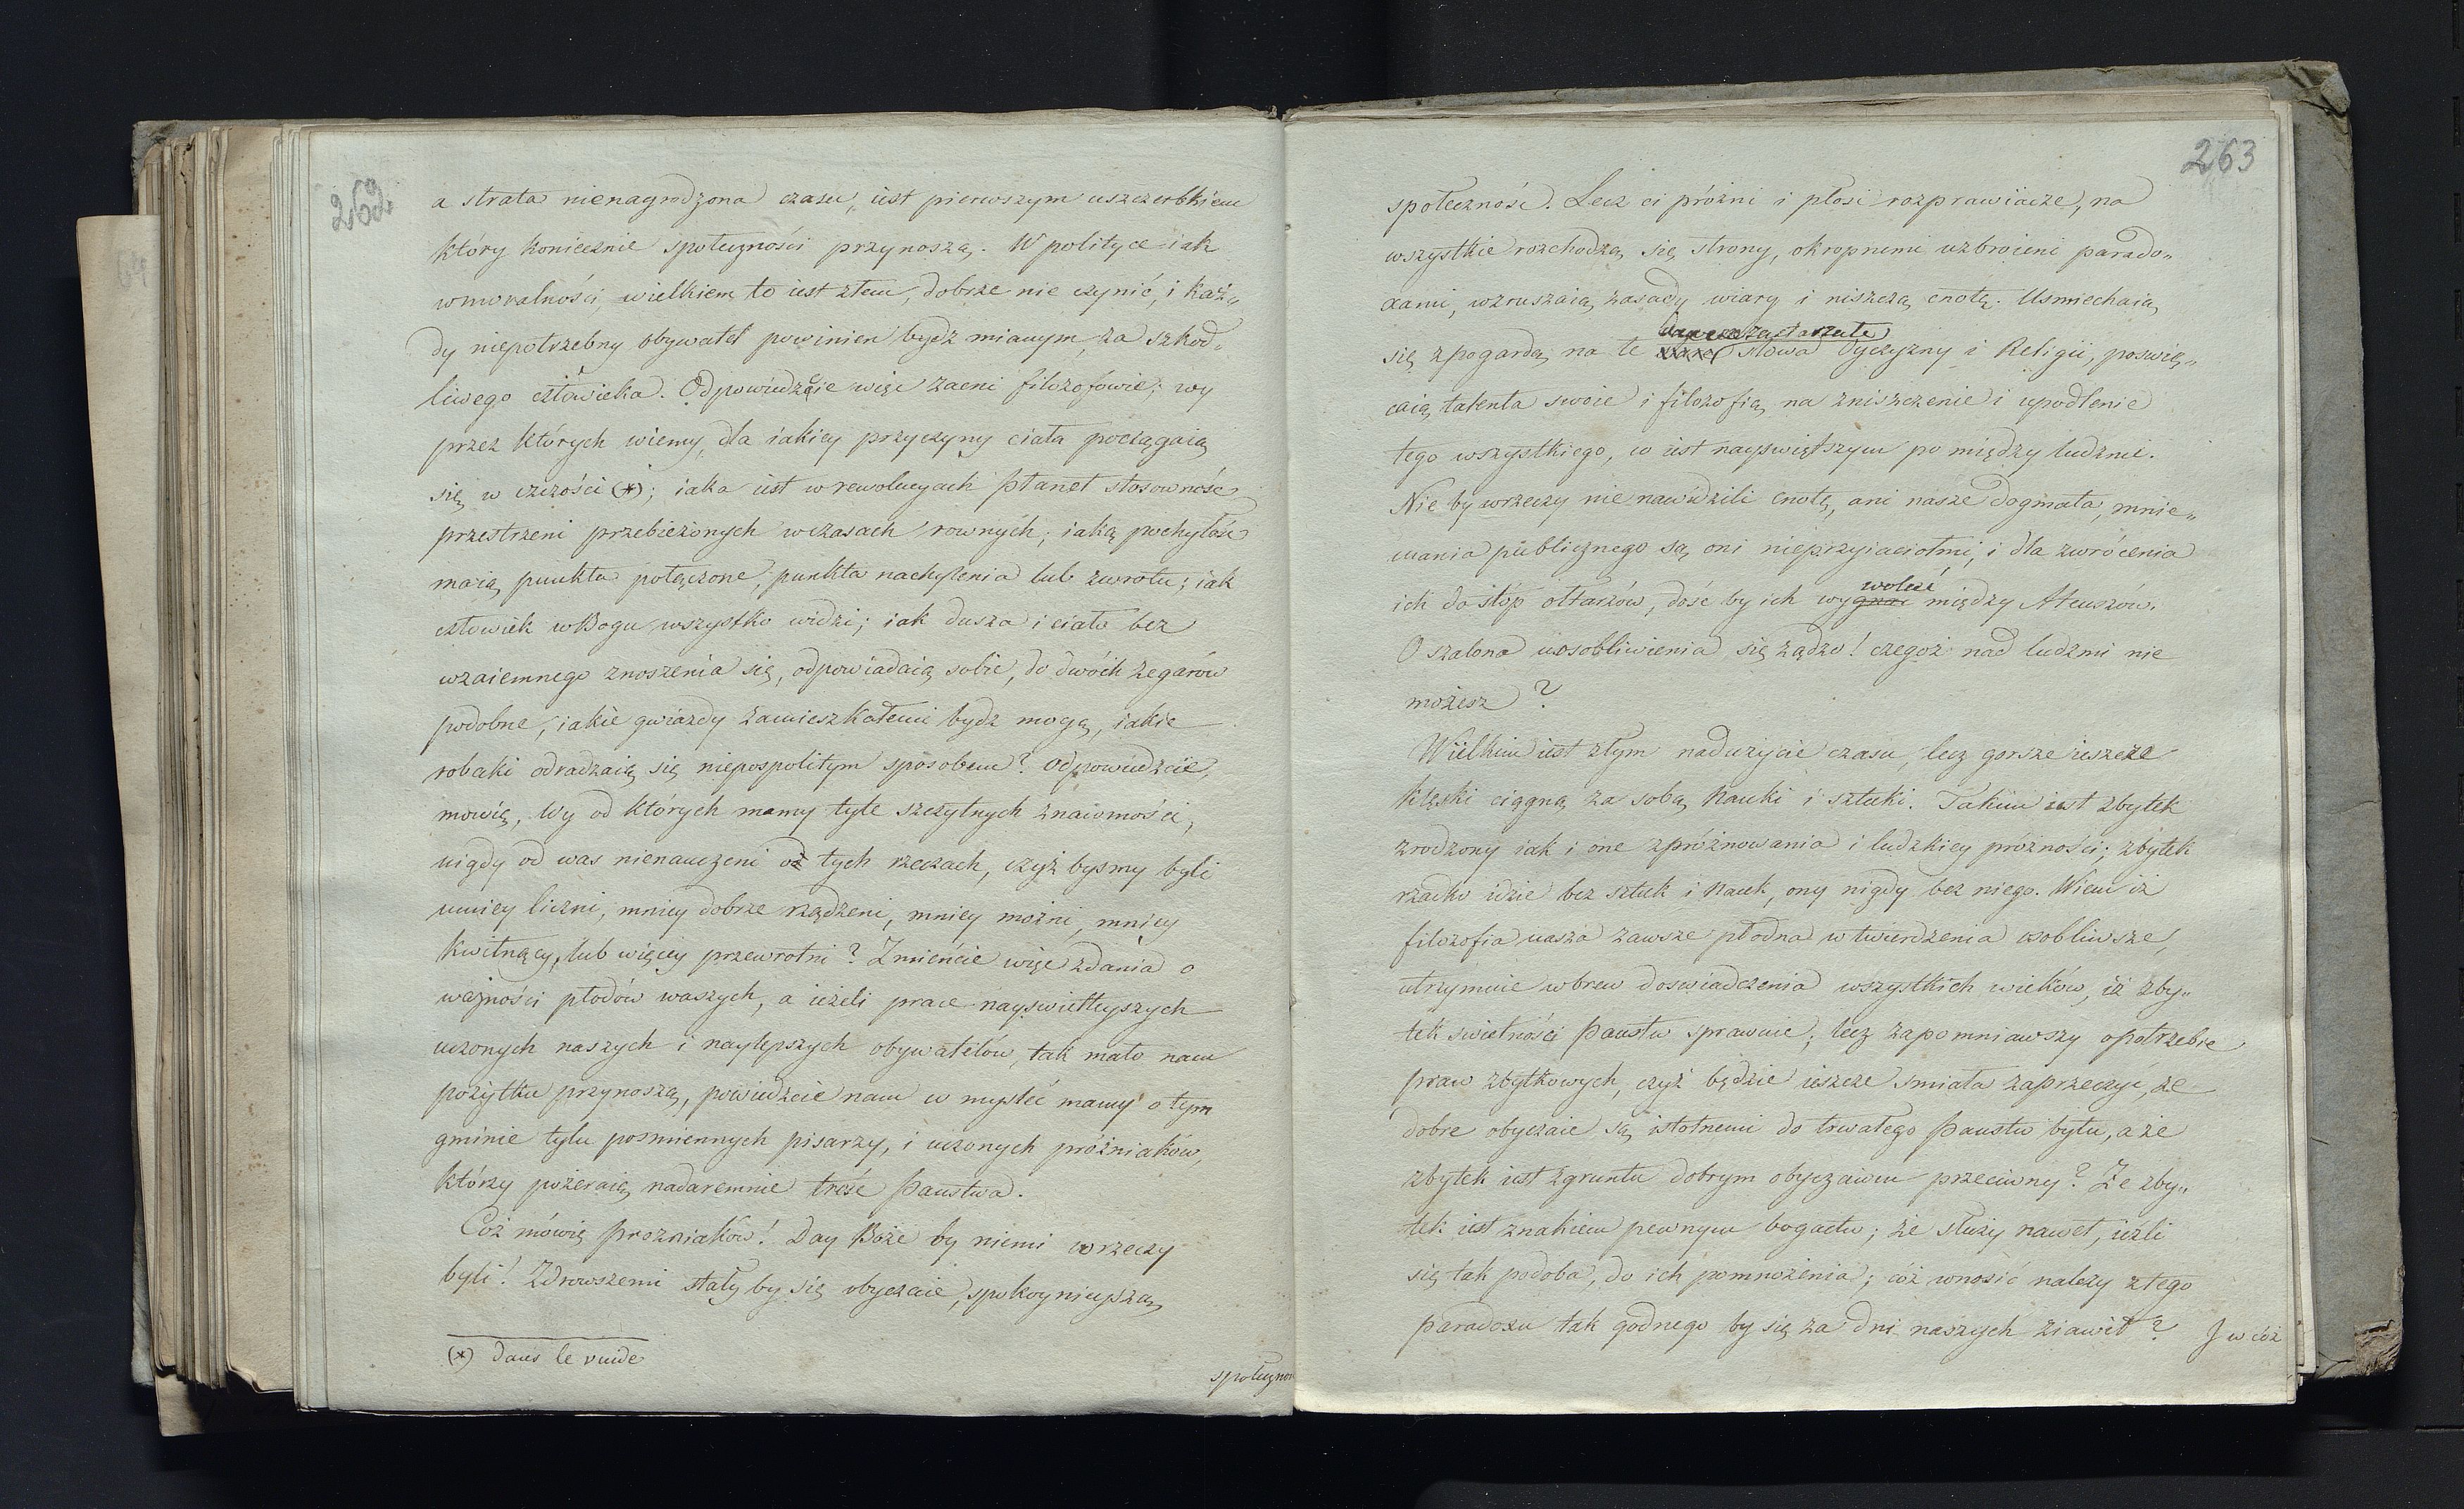 262.
a strata nienagrodzona czasu, iest pierwszym uszczerbkiem
który koniecznie społeczności przynoszą. W polityce iak
w moralności, wielkiem to iest złem, dobrze nie czynić, i każ„
dy niepotrzebny obywatel powinien bydź mianym za szkod„
liwego człowieka. Odpowiedzcie więc zacni filozofowie; wy
przez których wiemy, dla iakiey przyczyny ciała pociągaią
się w czczości (*); iaka iest w rewolucyach planet stosowność
przestrzeni przebieżonych w czasach rownych; iaką pochyłość
maią punkta połączone, punkta nachylenia lub zwrotu; iak
człowiek w Bogu wszystko widzi; iak dusza i ciało bez
wzaiemnego znoszenia się, odpowiadaią sobie, do dwóch zegarów
podobne, iakie gwiazdy zamieszkałemi bydz mogą, iakie
robaki odradzaią się niepospolitym sposobem? Odpowiedzcie,
mowię, Wy od których mamy tyle szczytnych znaiomości,
nigdy od was nienauczeni o tych rzeczach, czyż bysmy byli
mniey liczni, mniey dobrze rządzeni, mniey możni, mniey
kwitnący, lub więcey przewrotni? Zmieńcie więc zdania o
ważności płodów waszych, a ieżeli prace nayswietleyszych
uczonych naszych i naylepszych obywatelów, tak mało nam
pożytku przynoszą, powiedzcie nam co mysléć mamy o tym
gminie tylu posmiennych pisarzy, i uczonych próżniaków,
którzy pożeraią nadaremnie treść Państwa.
Cóż mówię prozniaków! Day Boże by niemi w rzeczy
byli! Zdrowszemi stały by się obyczaie, spokoynieyszą
(*) dans le vuide
społeczność
263
społeczność. Lecz ci próżni i płosi rozprawiacze, na
wszystkie rozchodzą się strony, okropnemi uzbroieni parado„
xami, wzruszaią zasady wiary i niszczą cnotę. Usmiechaią
zastarzałe
się z pogardą na te słowa Oyczyzny i Religii, poswię„
caią talenta swoie i filozofią na zniszczenie i upodlenie
tego wszystkiego, co iest nayswiętszym pomiędzy ludźmi.
Nie by w rzeczy nienawidzili cnotę, ani nasze dogmata, mnie„
mania publicznego są oni nieprzyiaciołmi, i dla zwrócenia
wołać
ich do stóp ołtarzów, dość by ich wygnać między Ateuszów.
O szalona uosobliwienia się żądzo! czegoż nad ludzmi nie
możesz?
Wielkim iest złym nadużycie czasu, lecz gorsze ieszcze
klęski ciągną za sobą Nauki i sztuki. Takim iest zbytek
zrodzony iak i one z próżnowania i ludzkiey próżności; zbytek
rzadko idzie bez sztuk i Nauk, ony nigdy bez niego. Wiem iż
filozofia nasza zawsze płodna w twierdzenia osobliwsze,
utrzymuie wbrew doswiadczenia wszystkich wieków, iż zby„
tek swietność Państw sprawuie; lecz zapomniawszy o potrzebie
praw zbytkowych, czyż będzie ieszcze smiała zaprzeczyć, że
dobre obyczaie są istotnemi do trwałego Państw bytu, a że
zbytek iest z gruntu dobrym obyczaiom przeciwny? Że zby„
tek iest znakiem pewnym bogactw; że służy nawet, ieżli
się tak podoba, do ich pomnożenia; cóż wnosić należy z tego
paradoxu tak godnego by się za dni naszych ziawił?
I w cóż